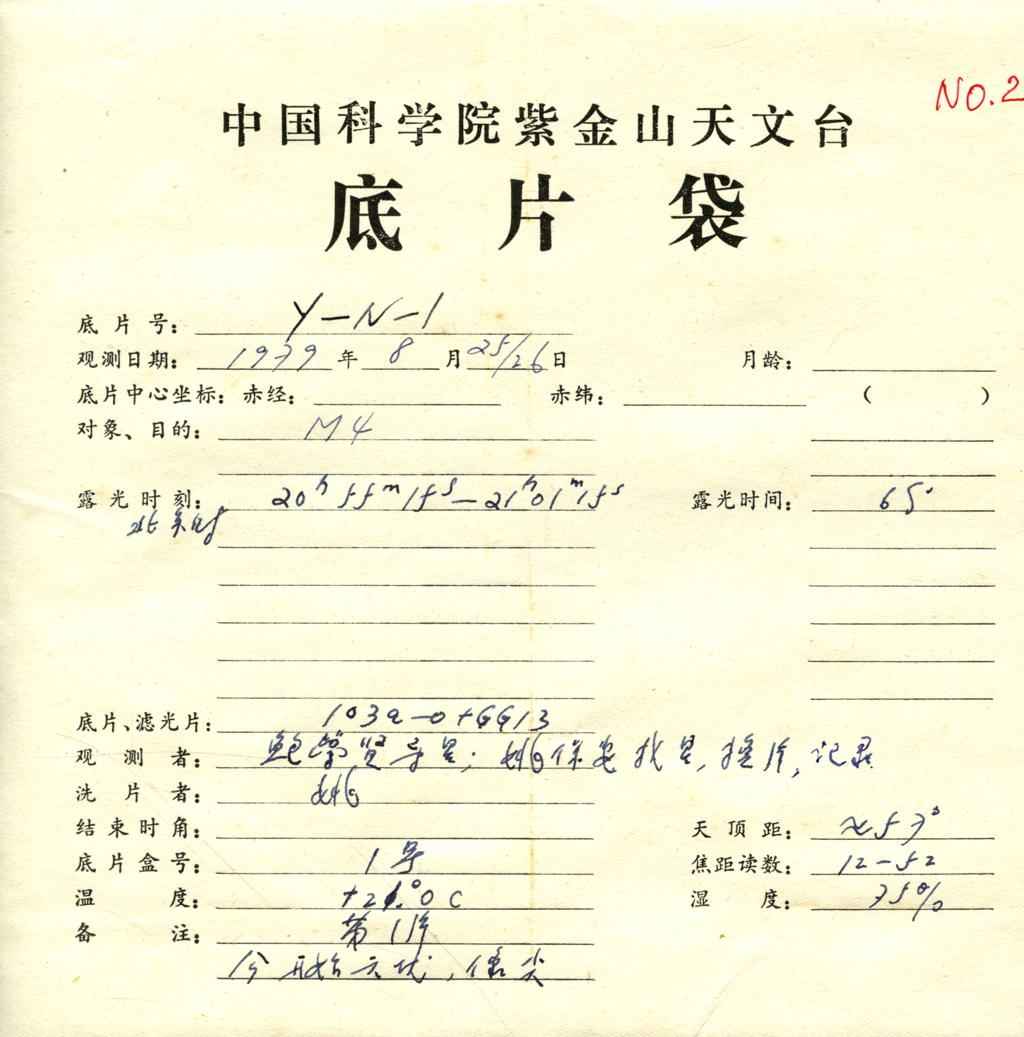 NO.2
中国科学院紫金山天文台
底片袋
底片号: Y-N-1
观测日期: 1979年 8月25/26日 月龄:
底片中心坐标: 赤经: 赤纬: ( )
对象、目的: M4
露光时刻: 20h55m15s—21h01m15s 露光时间: 6
北京时
底片、滤光片: 103a-O+GG13
观测者: 鲍梦贤导星; 姚保安找星, 换片, 记录
洗片者: 姚
结束时角: 天顶距: ≈57°
底片盒号: 1号 焦距读数: 12-52
温度: °0C 湿度: 75%
备注: 第1片
像尖